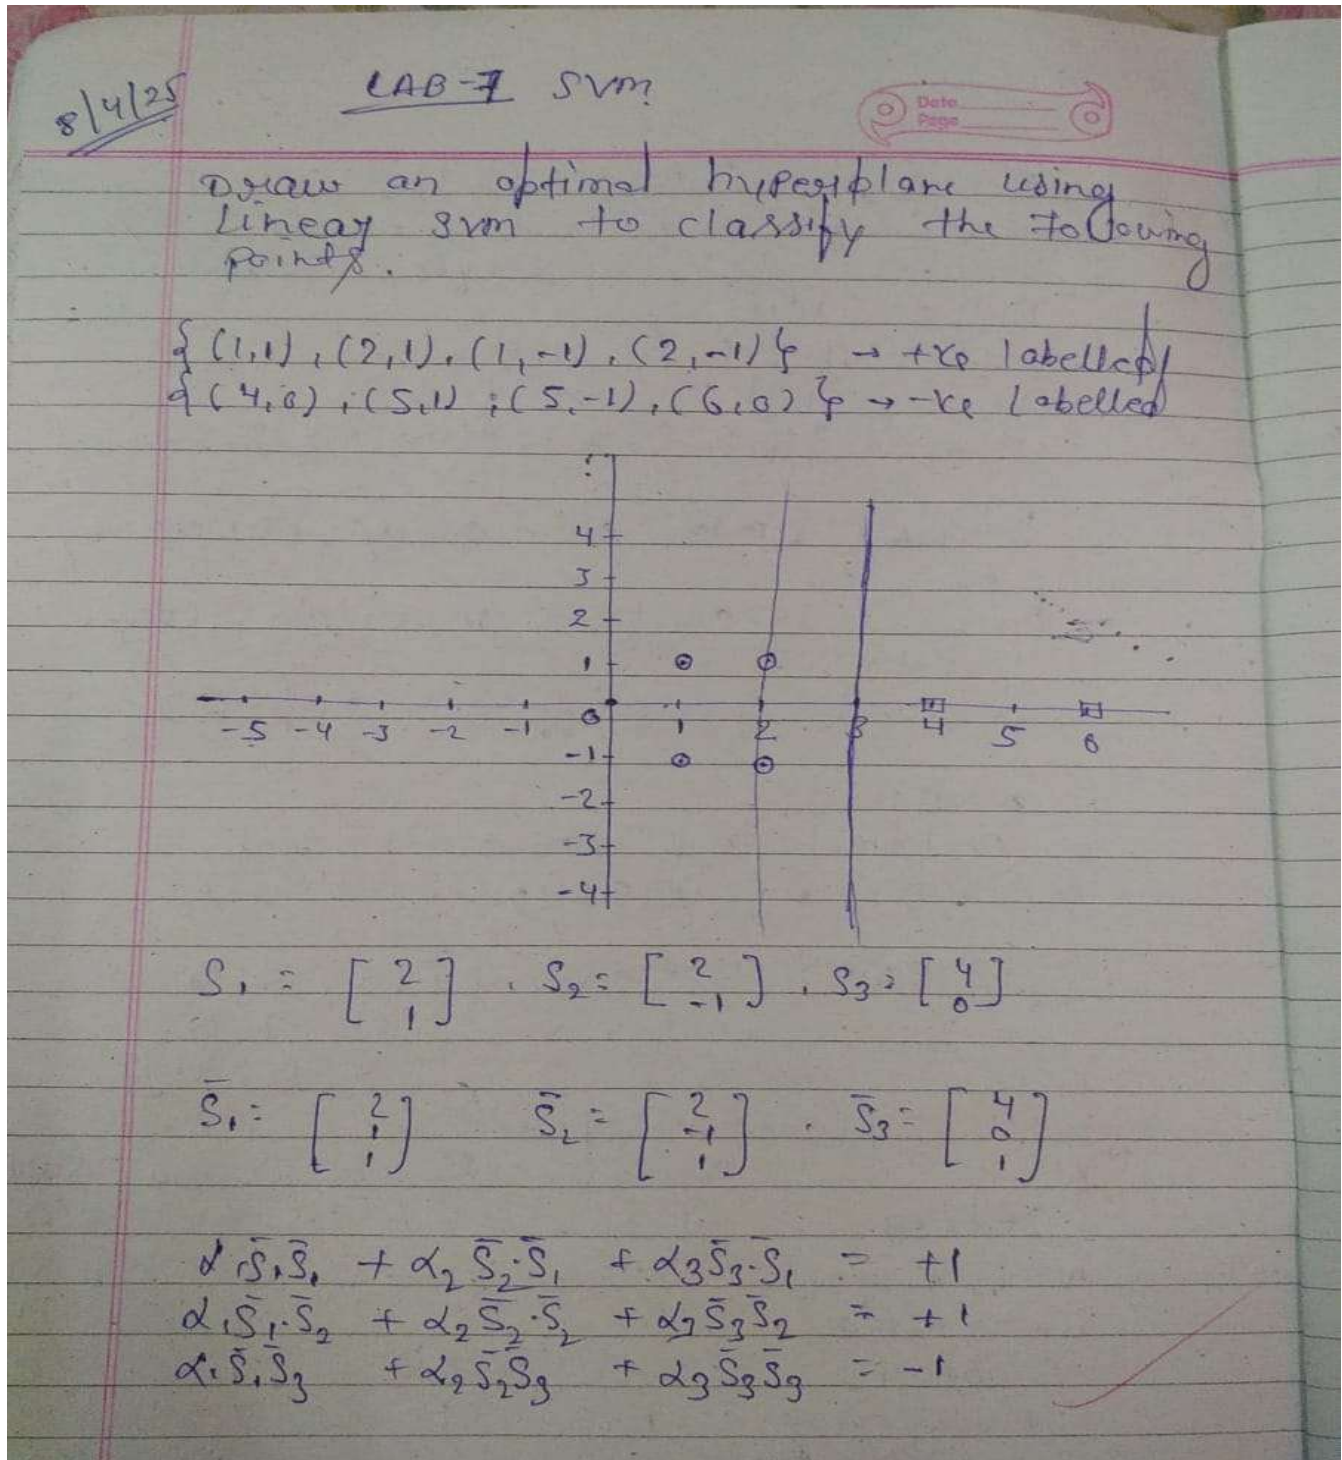 8/4/25
LAB-7 SVM
Date
Page
Draw an optimal hyperplane using
linear svm to classify the following
points.
{(1,1), (2,1), (1,-1), (2,-1)} → +ve labelled
{(4,0), (5,1), (5,-1), (6,0)} → -ve labelled
4
3
2
1
-5 -4 -3 -2 -1 0 1 2 3 4 5 6
-1
-2
-3
-4
S₁ = [2 1], S₂ = [2 -1], S₃ = [4 0]
S̄₁ = [2 1 1] S̄₂ = [2 -1 1], S̄₃ = [4 0 1]
α₁S̄₁S̄₁ + α₂S̄₂·S̄₁ + α₃S̄₃·S̄₁ = +1
α₁S̄₁·S̄₂ + α₂S̄₂·S̄₂ + α₃S̄₃S̄₂ = +1
α₁S̄₁S̄₃ + α₂S̄₂S̄₃ + α₃S̄₃S̄₃ = -1